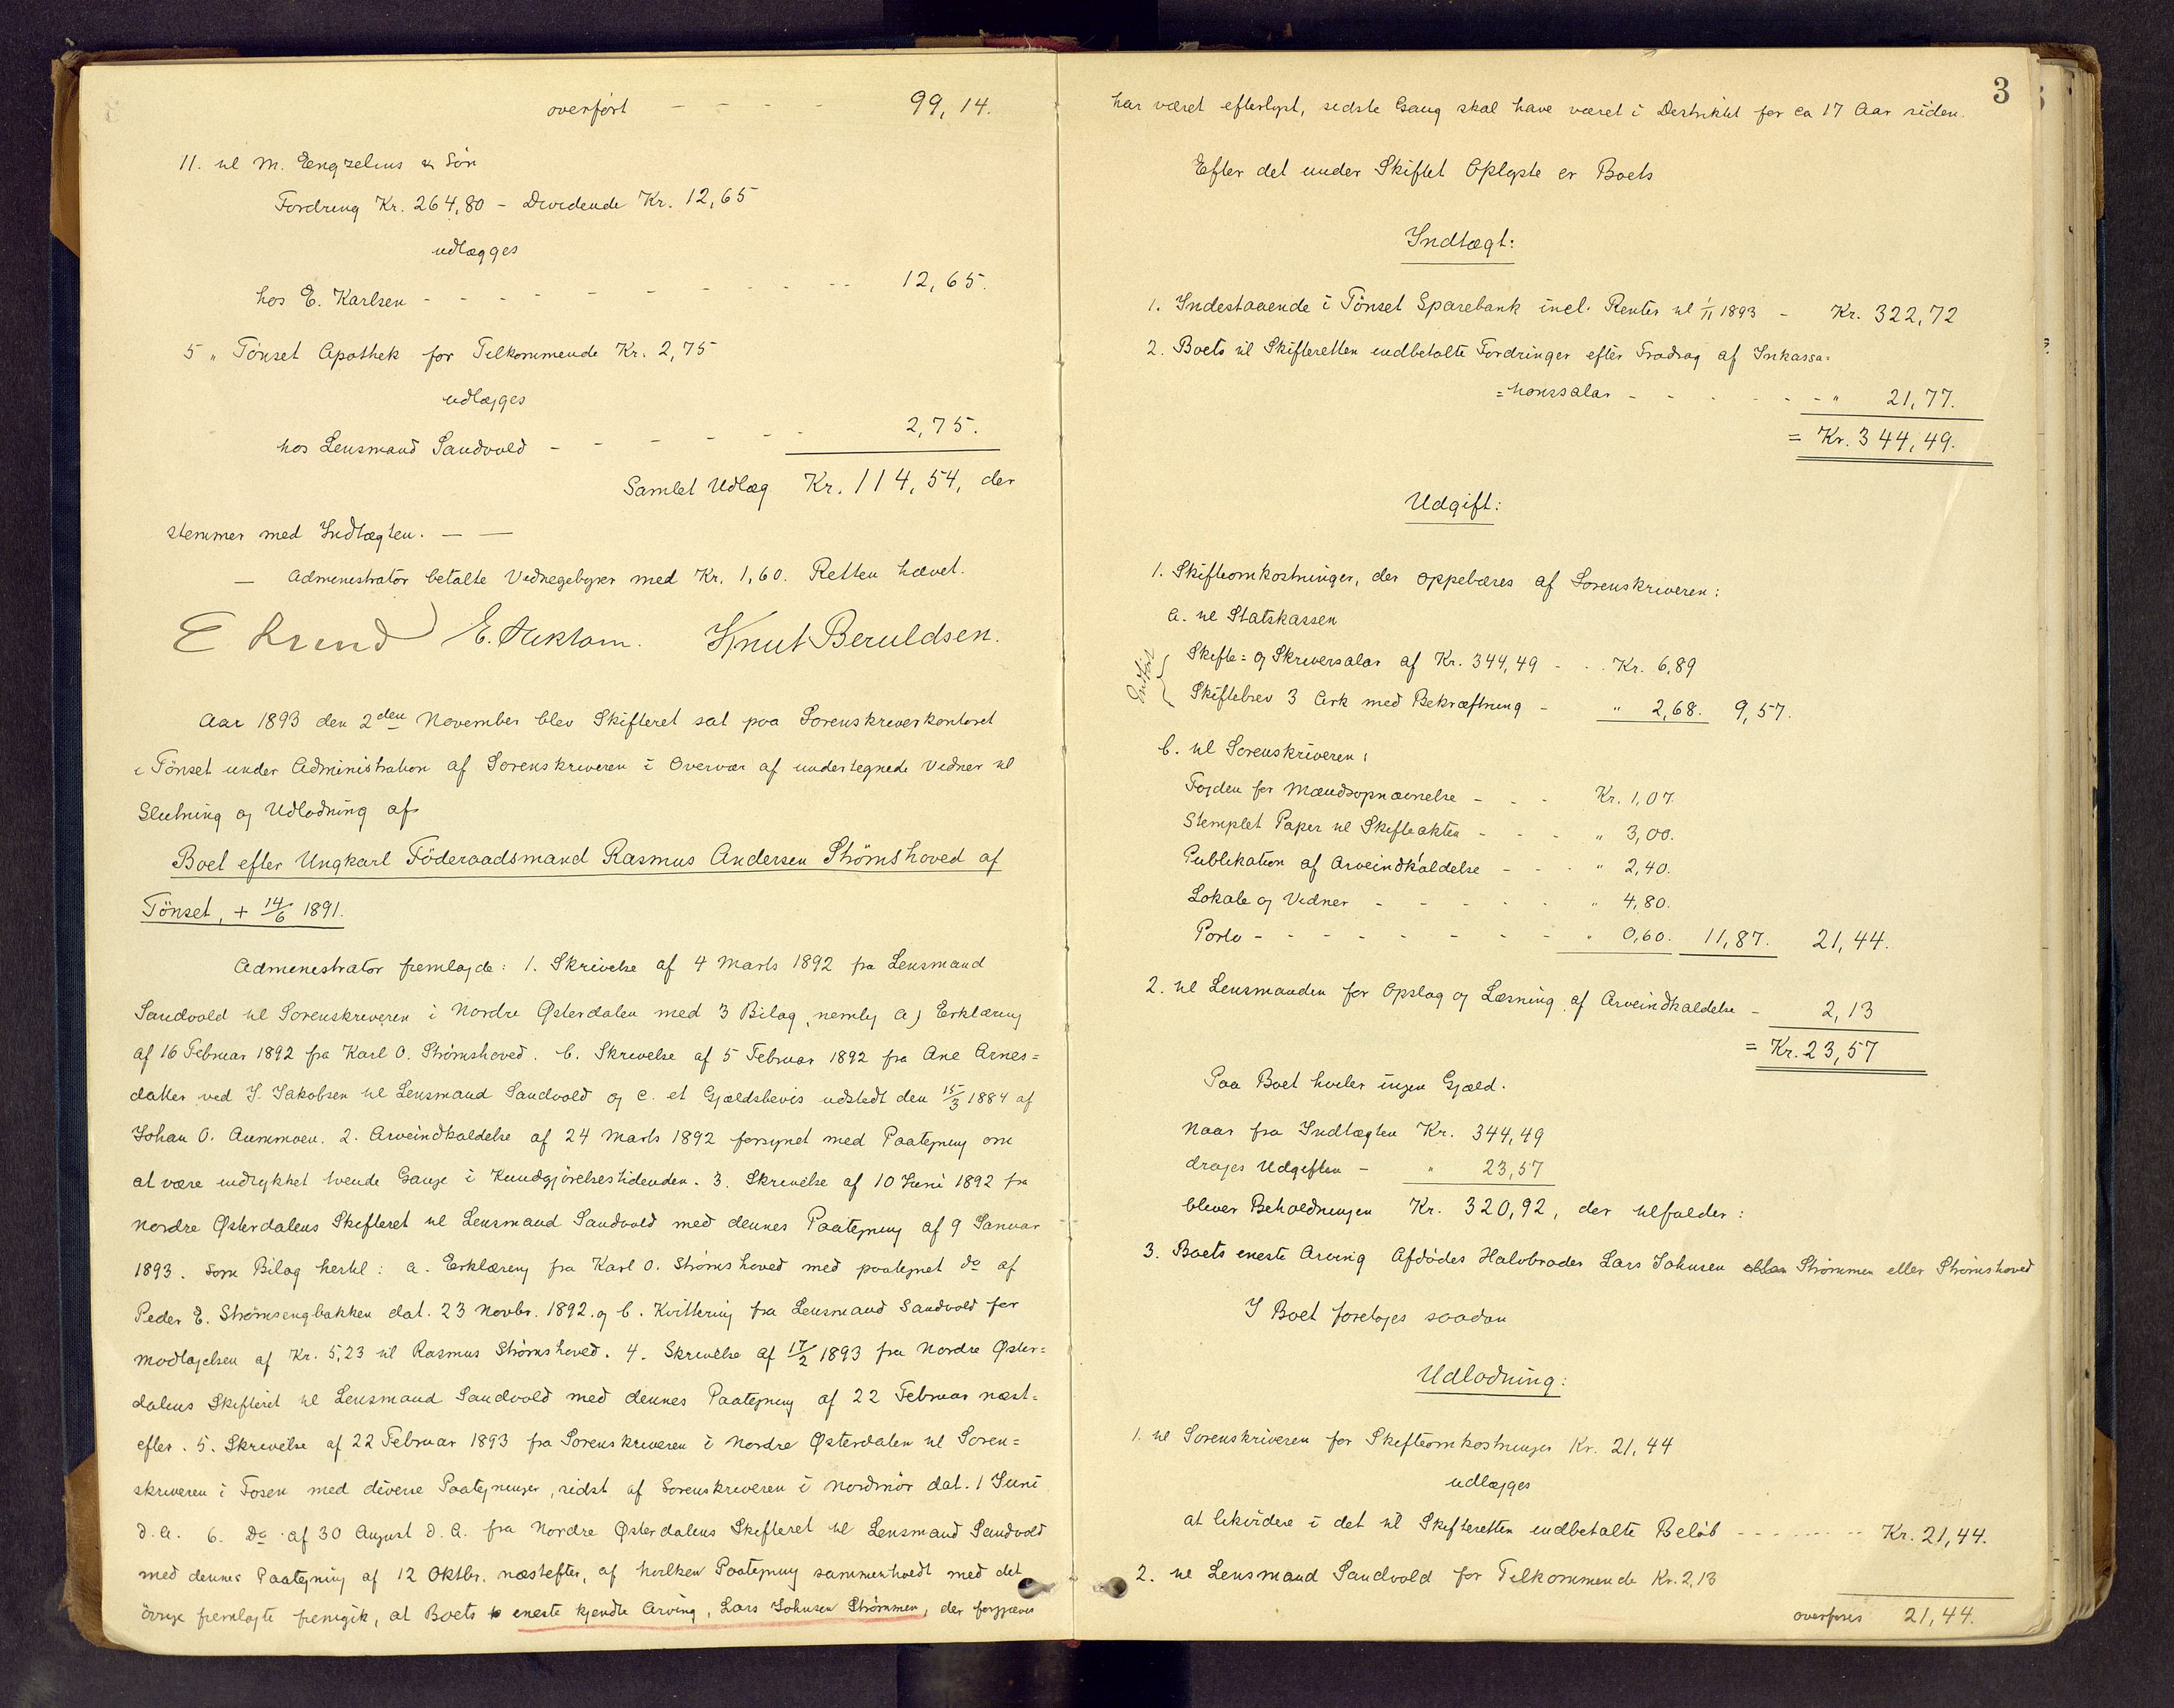 overført - - - - 99,14.
11. til M. Engzelius & Søn
Fordring Kr. 264,80 - Dividende Kr. 12,65
udlægges
hos E. Karlsen - - - - - - - - - 12,65.
5 " Tönset Apothek for Tilkommende Kr. 2,75
udlægges
hos Lensmand Sandvold - - - - - 2,75.
Samlet Udlæg Kr. 114,54, der
stemmer med Indtægten. — —
— Administrator betalte Vidnegebyr med Kr. 1,60. Retten hævet.
Knut Beruldsen.
Aar 1893 den 2den November blev Skifteret sat paa Sorenskriverkontoret
i Tönset under Administration af Sorenskriveren i Overvær af undertegnede Vidner til
Slutning og Udlodning af
Boet efter Ungkarl Föderaadsmand Rasmus Andersen Strømshoved af
Tönset, + 14/6 1891.
Administrator fremlagde: 1. Skrivelse af 4 Marts 1892 fra Lensmand
Sandvold til Sorenskriveren i Nordre Østerdalen med 3 Bilag, nemlig a) Erklæring
af 16 Februar 1892 fra Karl O. Strømshoved. b. Skrivelse af 5 Februar 1892 fra Ane Arnes=
datter ved J. Jakobsen til Lensmand Sandvold og c. et Gjældsbevis udstedt den 15/3 1884 af
Johan O. Aunmoen. 2. Arveindkaldelse af 24 Marts 1892 forsynet med Paategning om
at være indrykket tvende Gange i Kundgjørelsestidenden. 3. Skrivelse af 10 Juni 1892 fra
Nordre Østerdalens Skifteret til Lensmand Sandvold med dennes Paategning af 9 Januar
1893. Som Bilag hertil: a. Erklæring fra Karl O. Strømshoved med paategnet do af
Peder E. Strømsengbakken dat. 23 Novbr. 1892. og b. Kvittering fra Lensmand Sandvold for
Modtagelsen af Kr. 5,23 til Rasmus Strømshoved. 4. Skrivelse af 17/2 1893 fra Nordre Øster=
dalens Skifteret til Lensmand Sandvold med dennes Paategning af 22 Februar næst=
efter. 5. Skrivelse af 22 Februar 1893 fra Sorenskriveren i Nordre Østerdalen til Soren=
skriveren i Fosen med diverse Paategninger, sidst af Sorenskriveren i Nordmør dat. 1 Juni
d.A. 6. Do af 30 August d.A. fra Nordre Østerdalens Skifteret til Lensmand Sandvold
med dennes Paategning af 12 Oktbr. næstefter, af hvilken Paategning sammenholdt med det
övrige fremlagte fremgik, at Boets eneste kjendte Arving, Lars Johnsen Strømmen, der forgjæves
3
har været efterlyst, sidste Gang skal have været i Distriktet for ca 17 Aar siden.
Efter det under Skiftet Oplyste er Boets
Indtægt:
1. Indestaaende i Tönset Sparebank incl. Renter til 1/11 1893 - Kr. 322,72
2. Boets til Skifteretten indbetalte Fordringer efter Fradrag af Inkassa=
=tionssalar - - - - - - " 21,77.
= Kr. 344,49.
Udgift:
1. Skifteomkostninger, der oppebæres af Sorenskriveren:
a. til Statskassen
Skifte= og Skriversalar af Kr. 344,49 - - Kr. 6,89
Skiftebrev 3 Ark med Bekræftning - " 2,68. 9,57.
b. til Sorenskriveren:
Fogden for Mandsopnævnelse - - - Kr. 1,07.
Stemplet Papir til Skifteakten - - - " 3,00.
Publikation af Arveindkaldelse - - - " 2,40.
Lokale og Vidner - - - - - " 4,80.
Porto - - - - - - - - " 0,60. 11,87. 21,44.
2. til Lensmanden for Opslag og Læsning af Arveindkaldelse - 2,13
= Kr. 23,57
Paa Boet hviler ingen Gjæld.
Naar fra Indtægten Kr. 344,49
drages Udgiften - " 23,57
bliver Beholdningen Kr. 320,92, der tilfalder:
3. Boets eneste Arving Afdødes Halvbroder Lars Johnsen eller Strømmen eller Strømshoved
I Boet foretages saadan
Udlodning:
1. til Sorenskriveren for Skifteomkostninger Kr. 21,44
udlægges
at likvidere i det til Skifteretten indbetalte Beløb - - - - - - - Kr. 21,44.
2. til Lensmand Sandvold for Tilkommende Kr. 2,13
overføres 21,44.